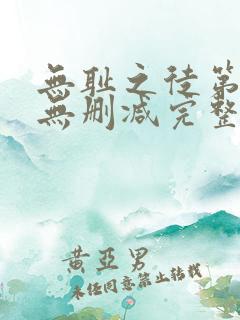 無耻之徒第
無删减完整
黄亞男
未经同意禁止转载